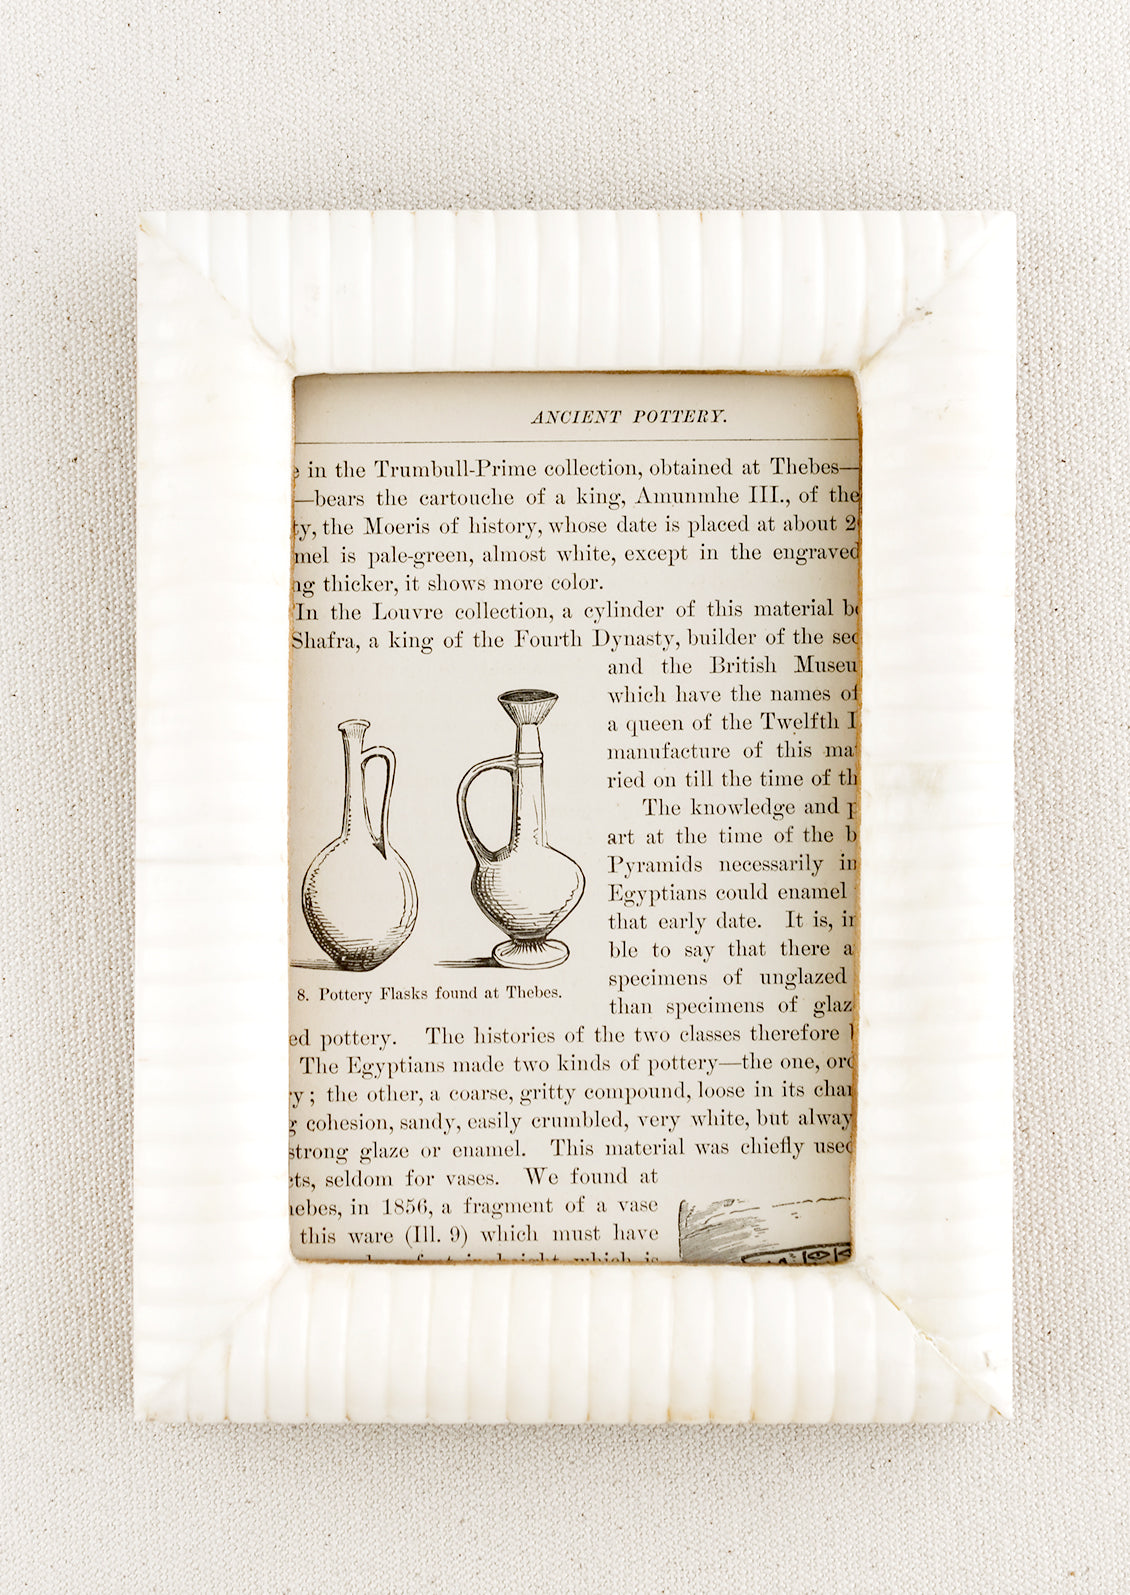 ANCIENT POTTERY.
in the Trumbull-Prime collection, obtained at Thebes—
—bears the cartouche of a king, Amunmhe III., of the
ty, the Moeris of history, whose date is placed at about 2
mel is pale-green, almost white, except in the engraved
ng thicker, it shows more color.
In the Louvre collection, a cylinder of this material b
Shafra, a king of the Fourth Dynasty, builder of the sec
and the British Museu
which have the names of
a queen of the Twelfth
manufacture of this ma
ried on till the time of th
The knowledge and
art at the time of the b
Pyramids necessarily in
Egyptians could enamel
that early date. It is, in
ble to say that there a
specimens of unglazed
than specimens of glaz
8. Pottery Flasks found at Thebes.
ed pottery. The histories of the two classes therefore
The Egyptians made two kinds of pottery—the one, ord
y; the other, a coarse, gritty compound, loose in its char
cohesion, sandy, easily crumbled, very white, but alway
strong glaze or enamel. This material was chiefly used
ts, seldom for vases. We found at
ebes, in 1856, a fragment of a vase
this ware (Ill. 9) which must have